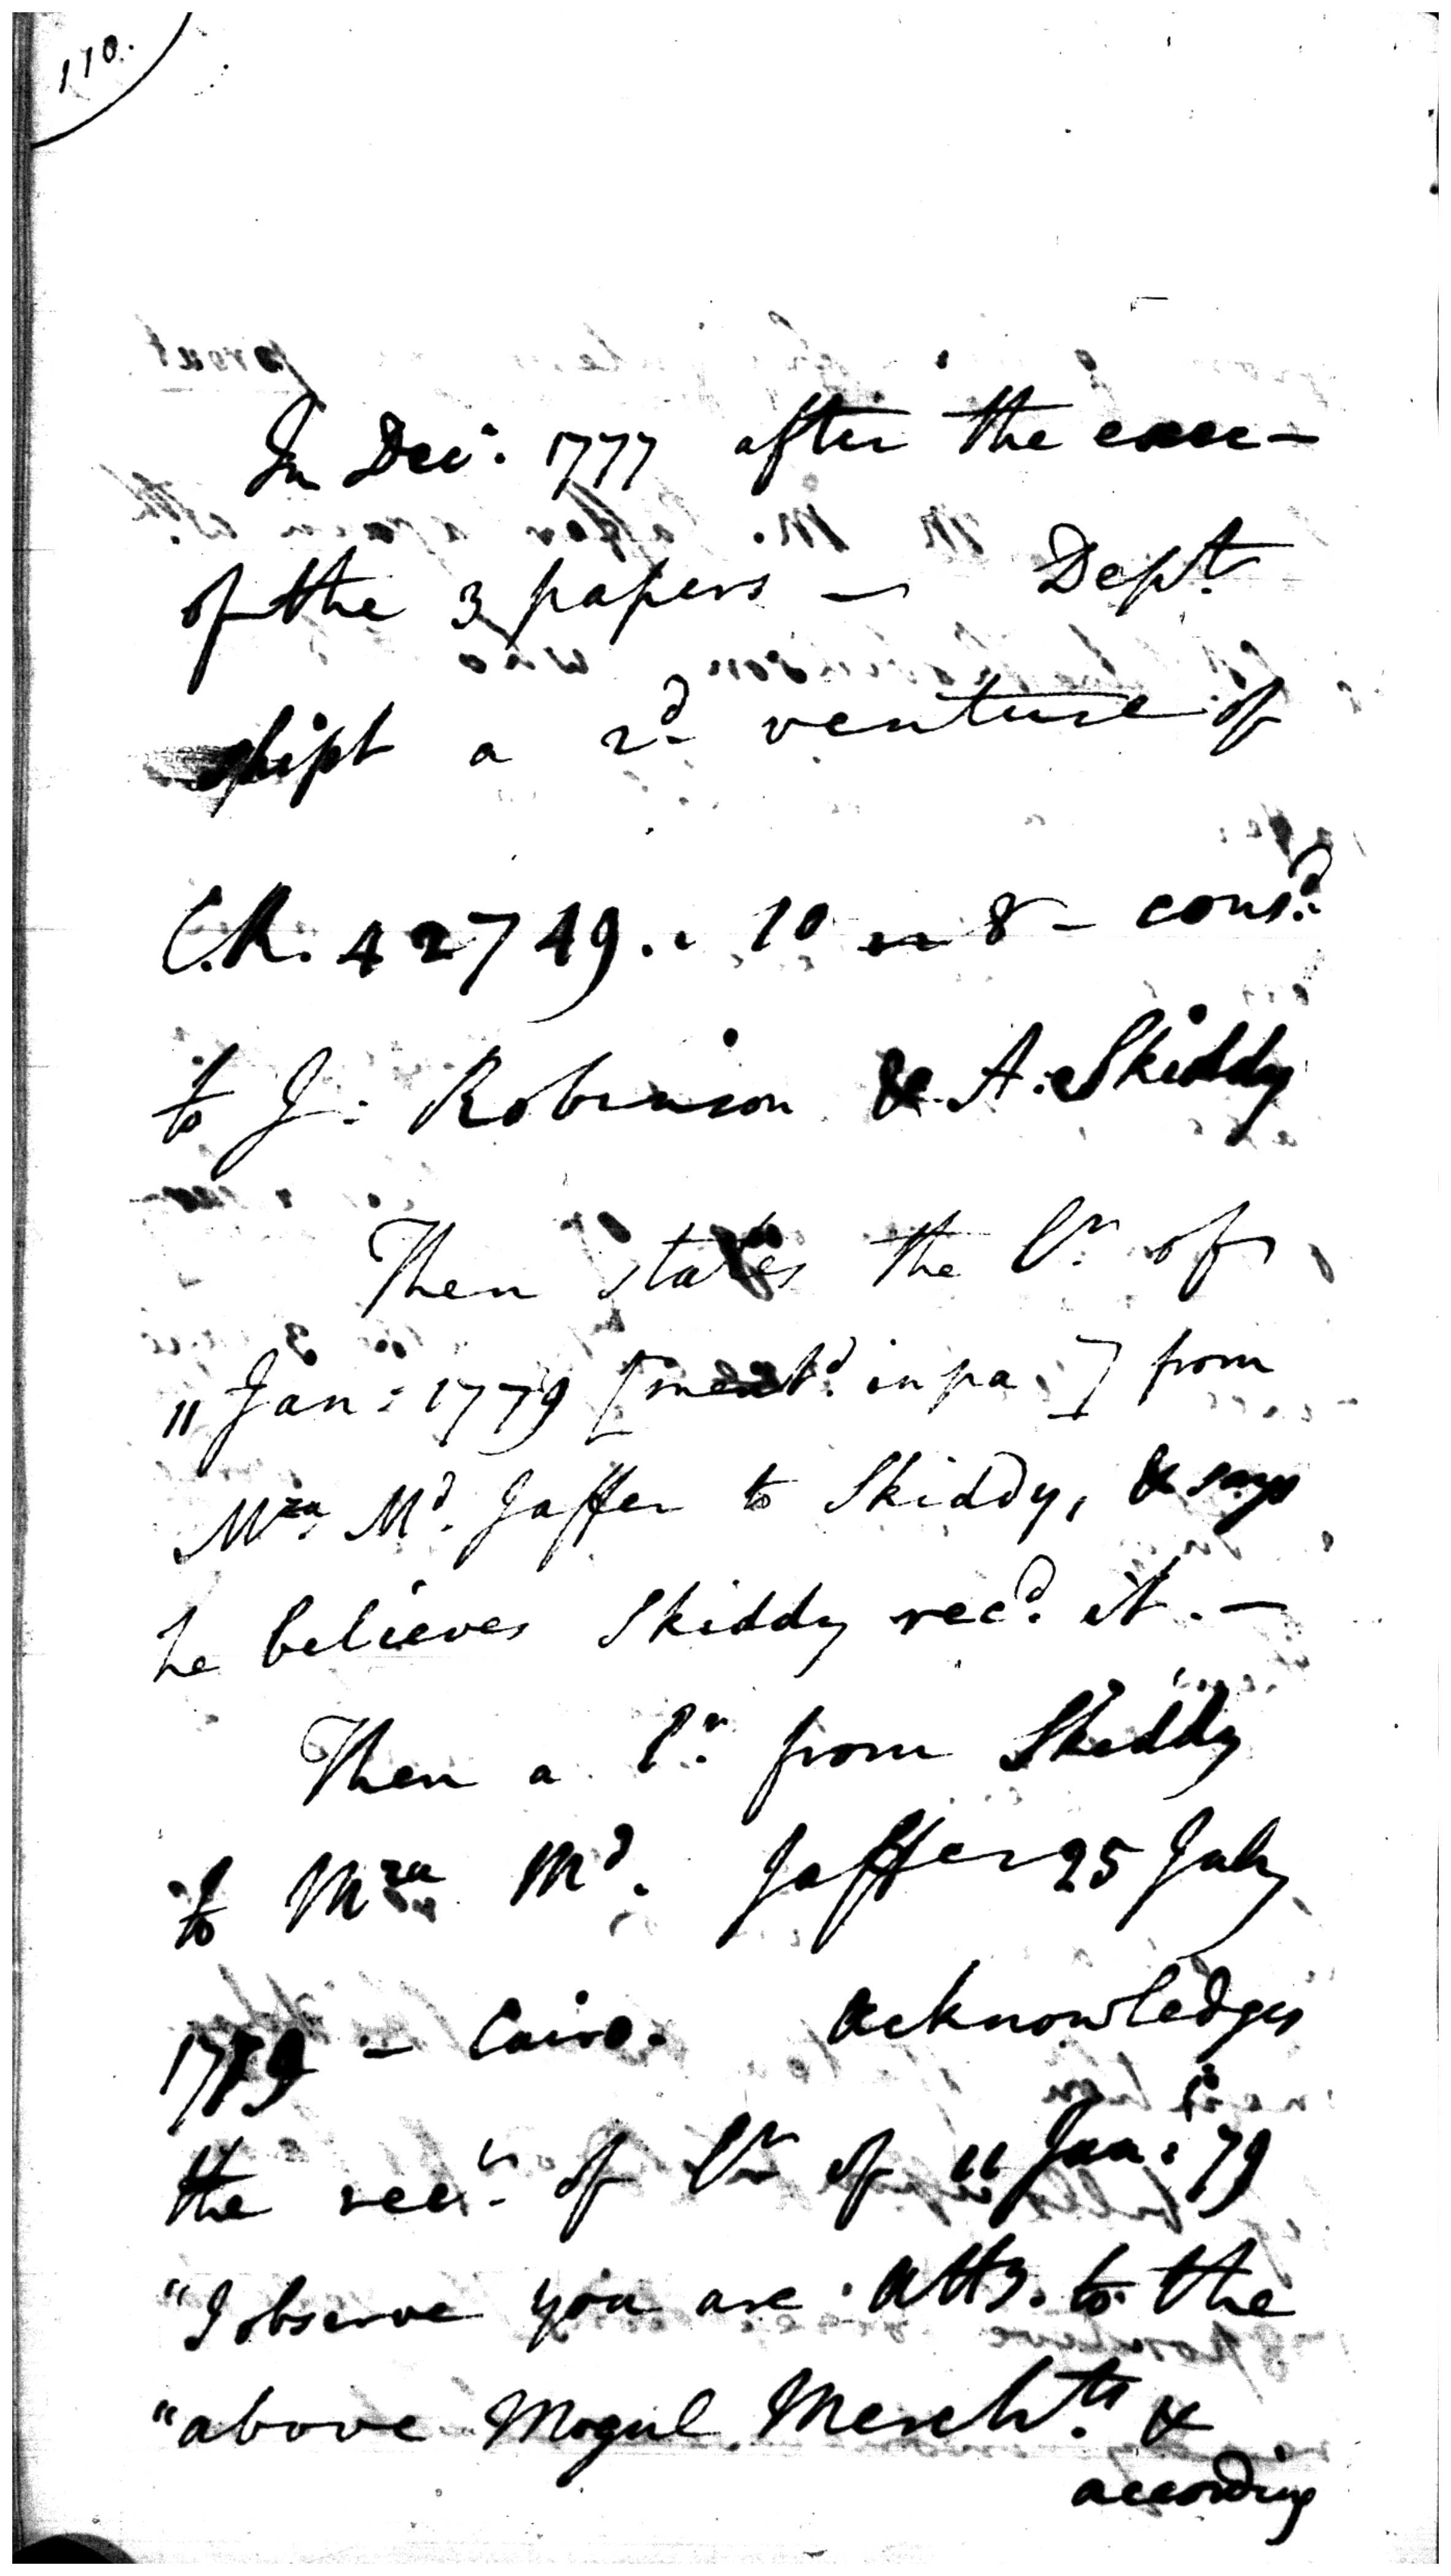 110.
In Decr. 1777 after the exec-
of the 3 papers — Dept.
shipt a 2d venture of
C.R. 42749.. 10 .. 8 - consd.
to J: Robinson & A: Skiddy
Then states the lr. of
11 Jan: 1779 [mentd. in pa ] from
Mza Md. Jaffer to Skiddy, & says
he believes Skiddy recd. it. —
Then a lr. from Skiddy
to Mza Md. Jaffer 25 July
1779 - Cairo. acknowledges
the rect. of lr. of 11 Jan: 79
"I observe you are atty. to the
"above Mogul Mercht.ts &
according